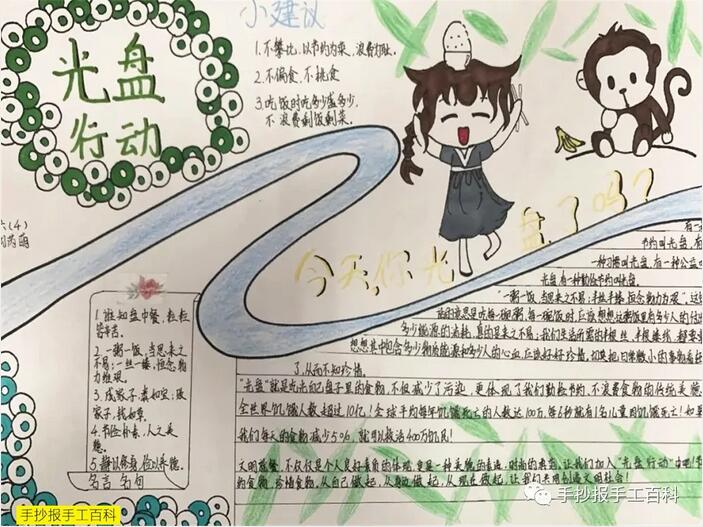 光盘
行动
小建议
1.不攀比,以节约为荣,浪费为耻。
2.不偏食,不挑食
3.吃饭时吃多少盛多少,
不浪费剩饭剩菜。
六(4)
今天,你光盘了吗?
1.谁知盘中餐,粒粒
皆辛苦。
2.一粥一饭,当思来之
不易;一丝一缕,恒念物
力维艰。
4.节俭朴素,人之美
德。
5.静以修身,俭以养德。
名言 名句
节约叫光盘,有
一种习惯叫光盘,有一种公益
光盘,有一种勤俭节约叫光盘。
"一粥一饭,当思来之不易;半丝半缕,恒念物力为艰",这
多少能源的消耗,真的是来之不易;我们
想想其中包含多少物质能源和多少人的心血,应该好好珍惜,切莫把日常微小的事物看
了,从而不知珍惜。
"光盘"就是吃光自己盘子里的食物,不仅减少了污染,更体现了我们勤俭节约、不浪费食物的传统美德。
全世界饥饿人数超过10亿!全球平均每年饥饿死亡的人数达100万,每6秒就有1名儿童因饥饿死亡!如果
我们每天的食物减少5%,就可以救活400万饥民!
文明用餐,不仅仅是个人良好素质的体现,更是一种美德的表达,时尚的表率,让我们加入"光盘行动"中吧!节
约食物,珍惜食物,从自己做起,从身边做起,从现在做起,让我们共同创造文明社会!
手抄报手工百科
手抄报手工百科